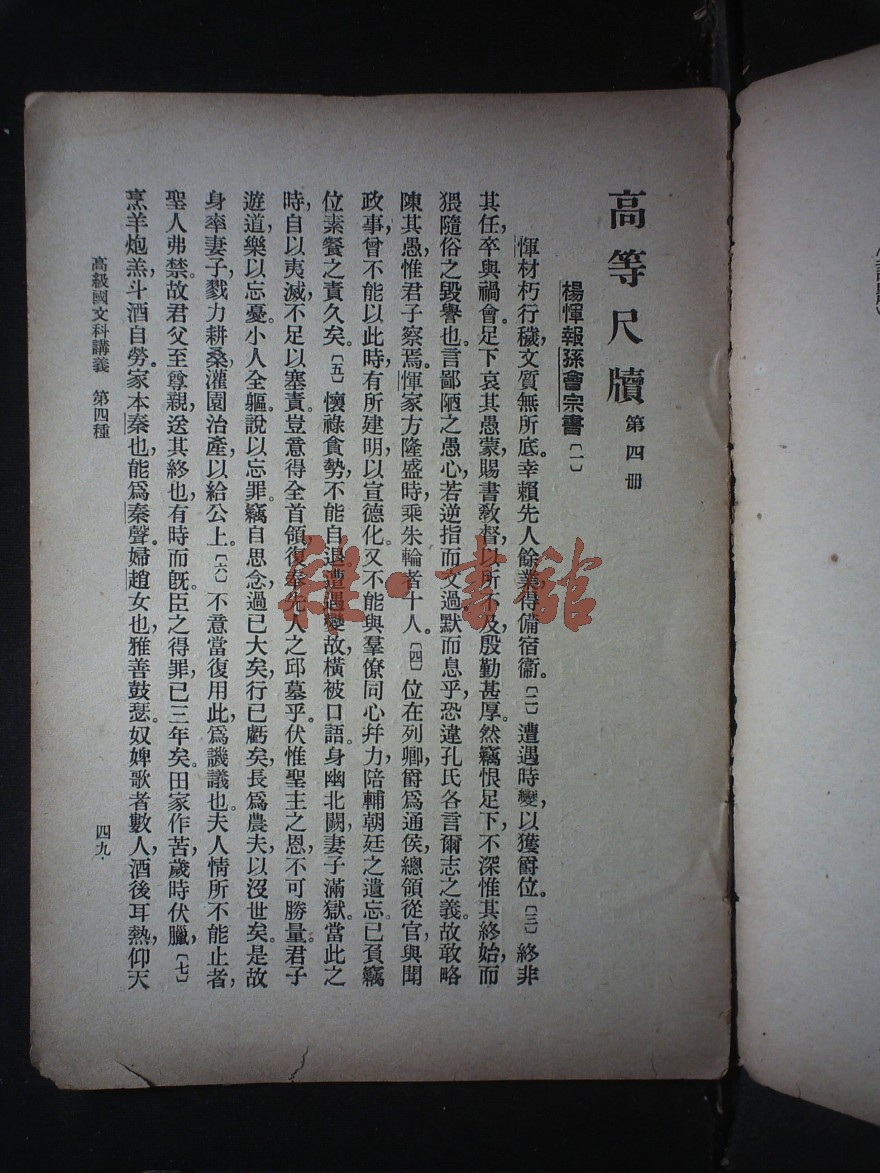 高等尺牘 第四册
楊惲報孫會宗書〔一〕
惲材朽行穢,文質無所底。幸賴先人餘業,得備宿衞。〔二〕遭遇時變,以獲爵位。〔三〕終非
其任,卒與禍會。足下哀其愚蒙,賜書敎督以所不及,殷勤甚厚。然竊恨足下,不深惟其終始,而
猥隨俗之毀譽也。言鄙陋之愚心,若逆指而文過,默而息乎,恐違孔氏各言爾志之義。故敢略
陳其愚,惟君子察焉。惲家方隆盛時,乘朱輪者十人。〔四〕位在列卿,爵爲通侯,總領從官,與聞
政事,曾不能以此時有所建明,以宣德化。又不能與羣僚同心幷力,陪輔朝廷之遺忘。已負竊
位素餐之責久矣。〔五〕懷祿貪勢,不能自退,遭遇變故,橫被口語。身幽北闕,妻子滿獄。當此之
時,自以夷滅不足以塞責。豈意得全首領,復奉先人之邱墓乎。伏惟聖主之恩,不可勝量。君子
遊道,樂以忘憂。小人全軀,說以忘罪。竊自思念,過已大矣,行已虧矣,長爲農夫以沒世矣。是故
身率妻子,戮力耕桑,灌園治產,以給公上。〔六〕不意當復用此,爲譏議也。夫人情所不能止者,
聖人弗禁。故君父至尊親,送其終也,有時而旣。臣之得罪,已三年矣。田家作苦,歲時伏臘,〔七〕
烹羊炮羔,斗酒自勞。家本秦也,能爲秦聲。婦趙女也,雅善鼓瑟。奴婢歌者數人,酒後耳熱,仰天
高級國文科講義 第四種
四九
雜·書館